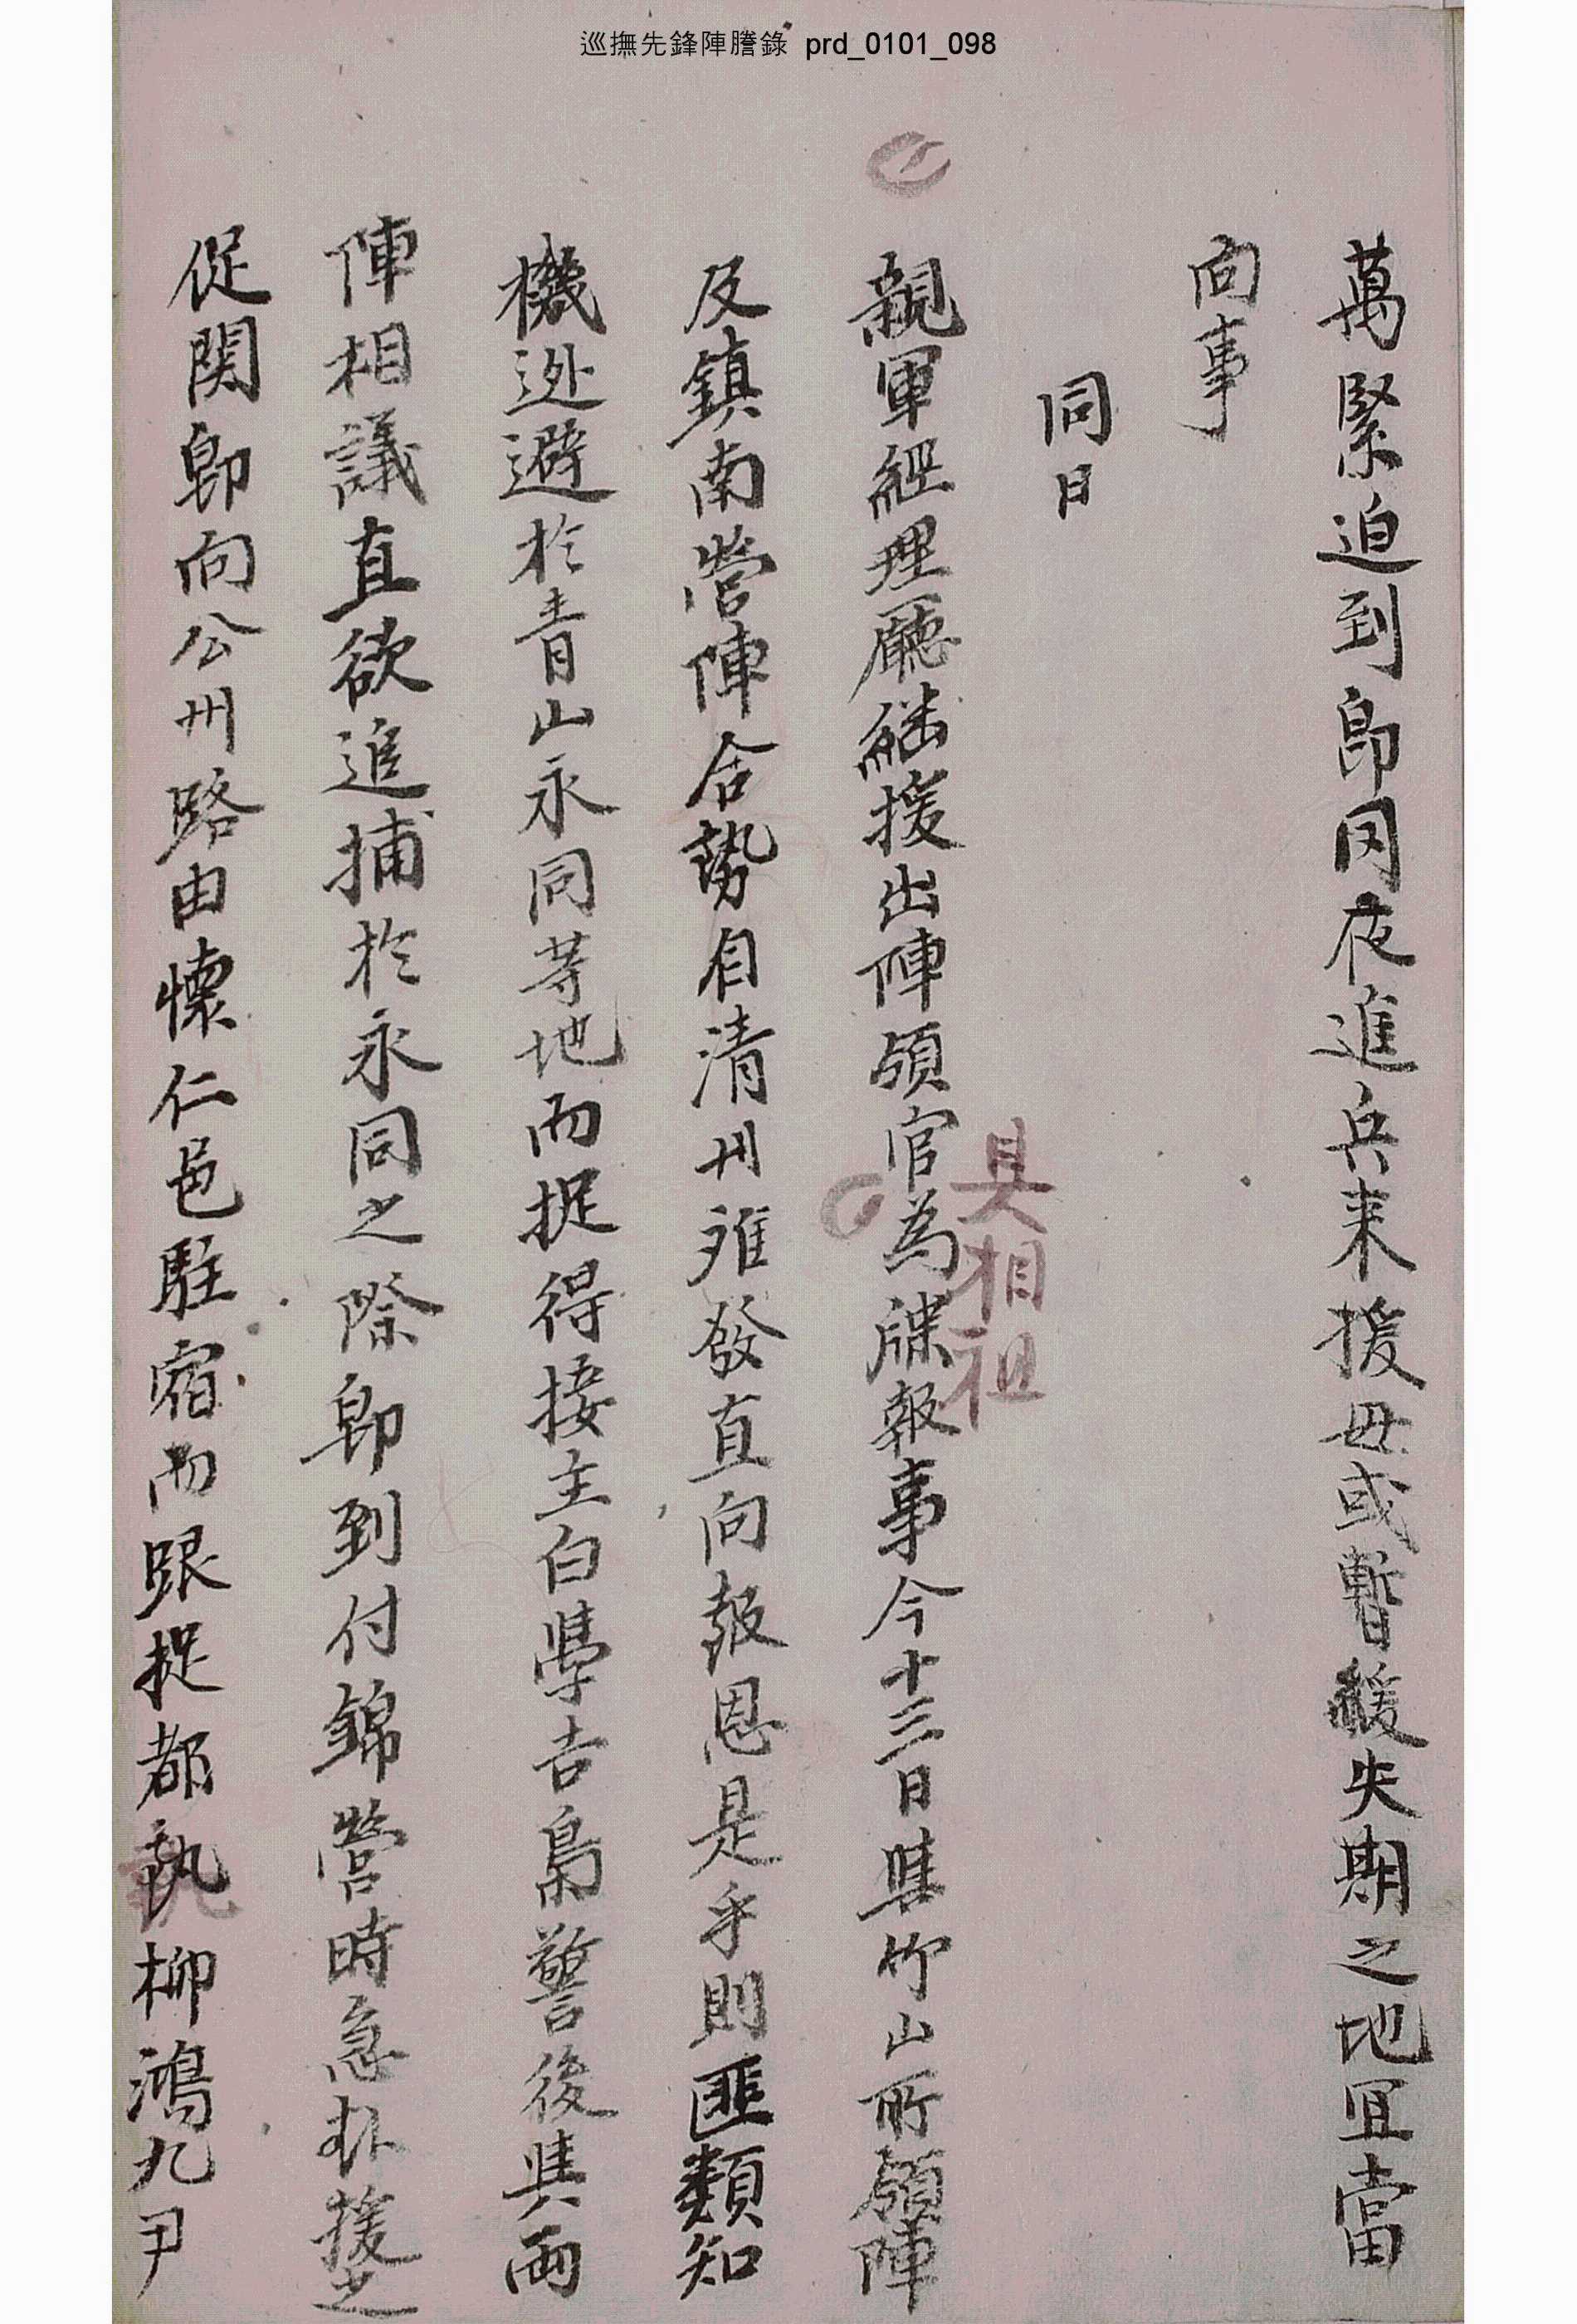 巡撫先鋒陣謄錄 prd_0101_098
萬緊迫到卽罔夜進兵来援毋或暫緩失期之地冝當
向事
同日
親軍經理廳継援出陣領官為牒報事今十三日與竹山所領陣
具相祖
及鎮南營陣合勢自清州離發直向報恩是乎則匪類知
機迯避於青山永同等地而捉得接主白學吉梟警後與兩
陣相議直欲追捕於永同之際卽到付錦營時急赴援之
促関卽向公州路由懷仁邑駐宿而跟捉都執柳鴻九尹